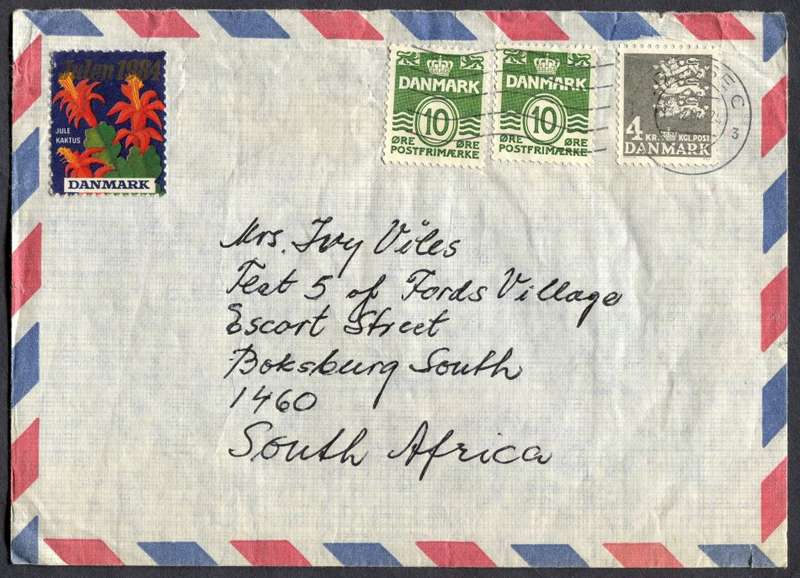 Julen 1984
JULE
KAKTUS
DANMARK
DANMARK
10
ØRE ØRE
POSTFRIMÆRKE
DANMARK
10
ØRE ØRE
POSTFRIMÆRKE
4 KR. KGL.POST
DANMARK
3
Mrs. Ivy Viles
Flat 5 of Fords Village
Escort Street
Boksburg South
1460
South Africa